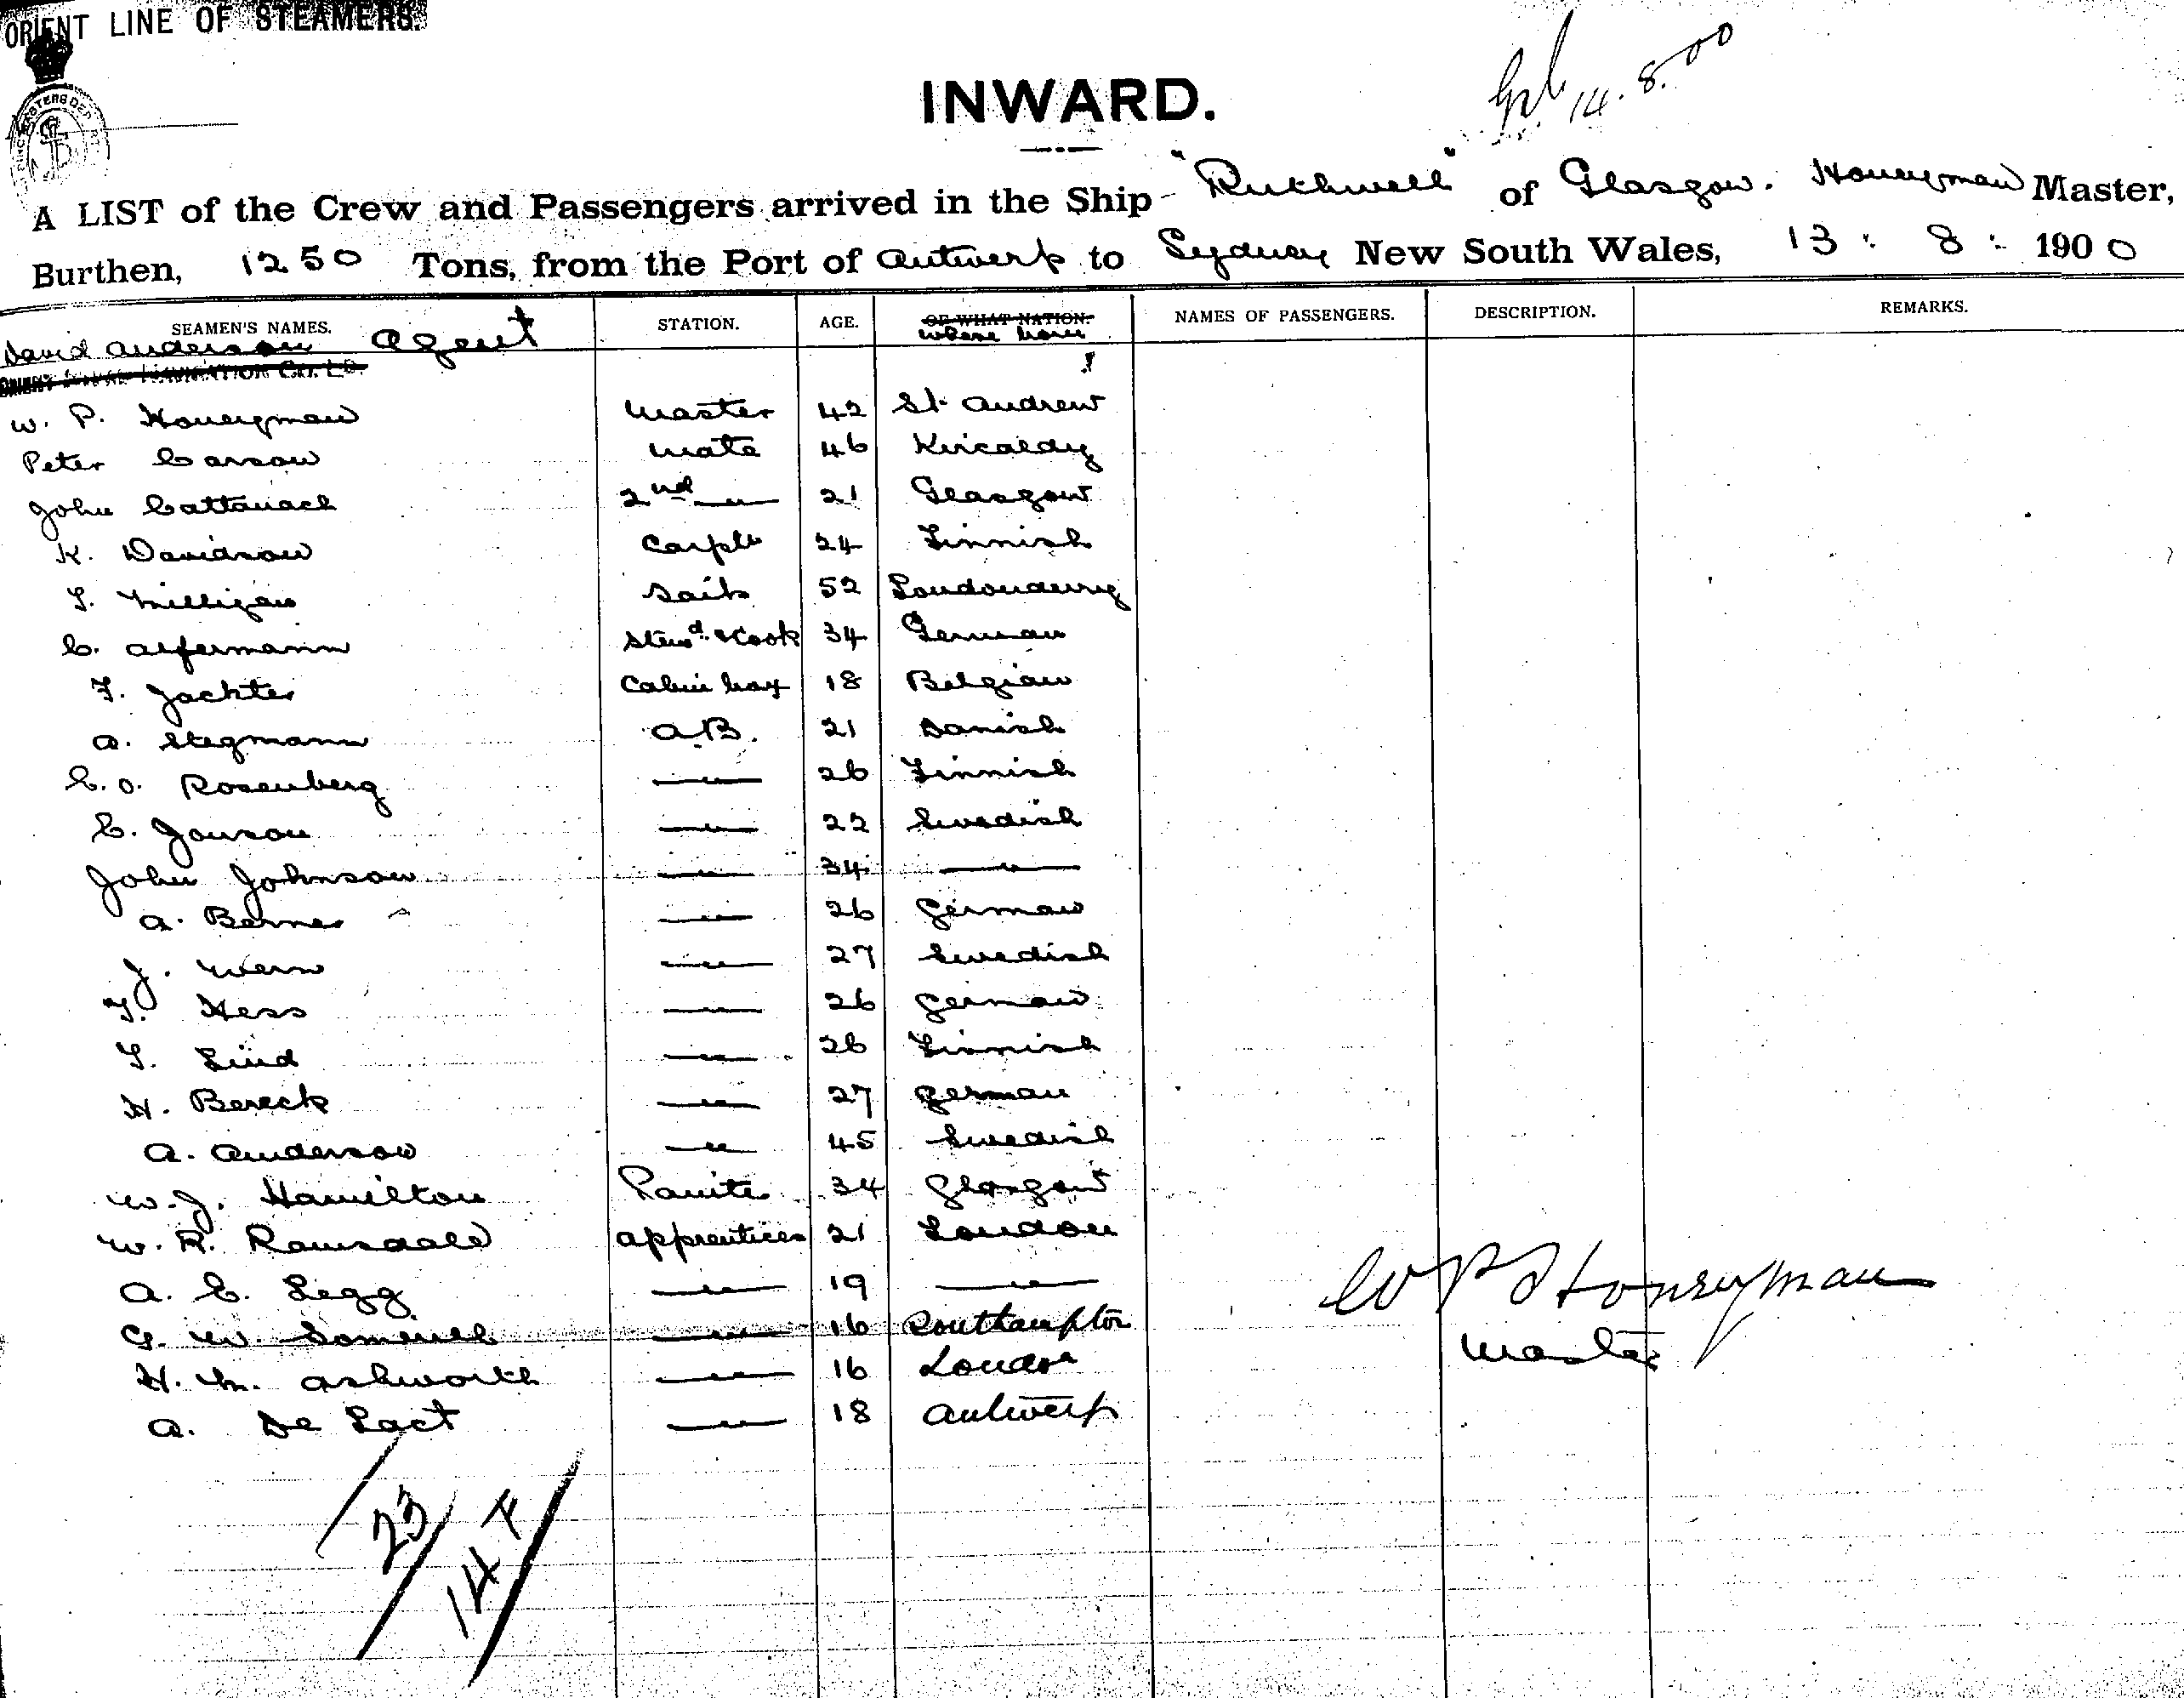 ORIENT LINE OF STEAMERS.
INWARD.
14.8.00
A LIST of the Crew and Passengers arrived in the Ship "Ruthwell" of Glasgow. Honeyman Master,
Burthen, 1250 Tons, from the Port of Antwerp to Sydney New South Wales, 13 : 8 : 1900
SEAMEN'S NAMES. STATION. AGE. OF WHAT NATION. NAMES OF PASSENGERS. DESCRIPTION. REMARKS.
David Anderson Agent whence born
W. P. Honeyman Master 42 St. Andrew
Peter Carson Mate 46 Kircaldy
John Cattanach 2nd —"— 21 Glasgow
K. Davidson Carptr 24 Finnish
T. Milligan Sails 52 Londonderry
C. Alfermann Stewd. & Cook 34 German
F. Jachter Cabin boy 18 Belgian
A. Stegmann A.B. 21 Danish
C. O. Rosenberg —"— 26 Finnish
C. Jonson —"— 22 Swedish
John Johnson —"— 34 —"—
A. Berner —"— 26 German
J. Wern —"— 27 Swedish
F. Hess —"— 26 German
T. Lind —"— 26 Finnish
H. Bereck —"— 27 German
A. Anderson —"— 45 Swedish
W. J. Hamilton 34 Glasgow
W. R. Ramsdale Apprentices 21 London
A. C. Legg —"— 19 —"—
G. W. —"— 16 Southampton
H. M. Ashworth —"— 16 London
A. De Lact —"— 18 Antwerp
W P Honeyman
Master
23
14 F